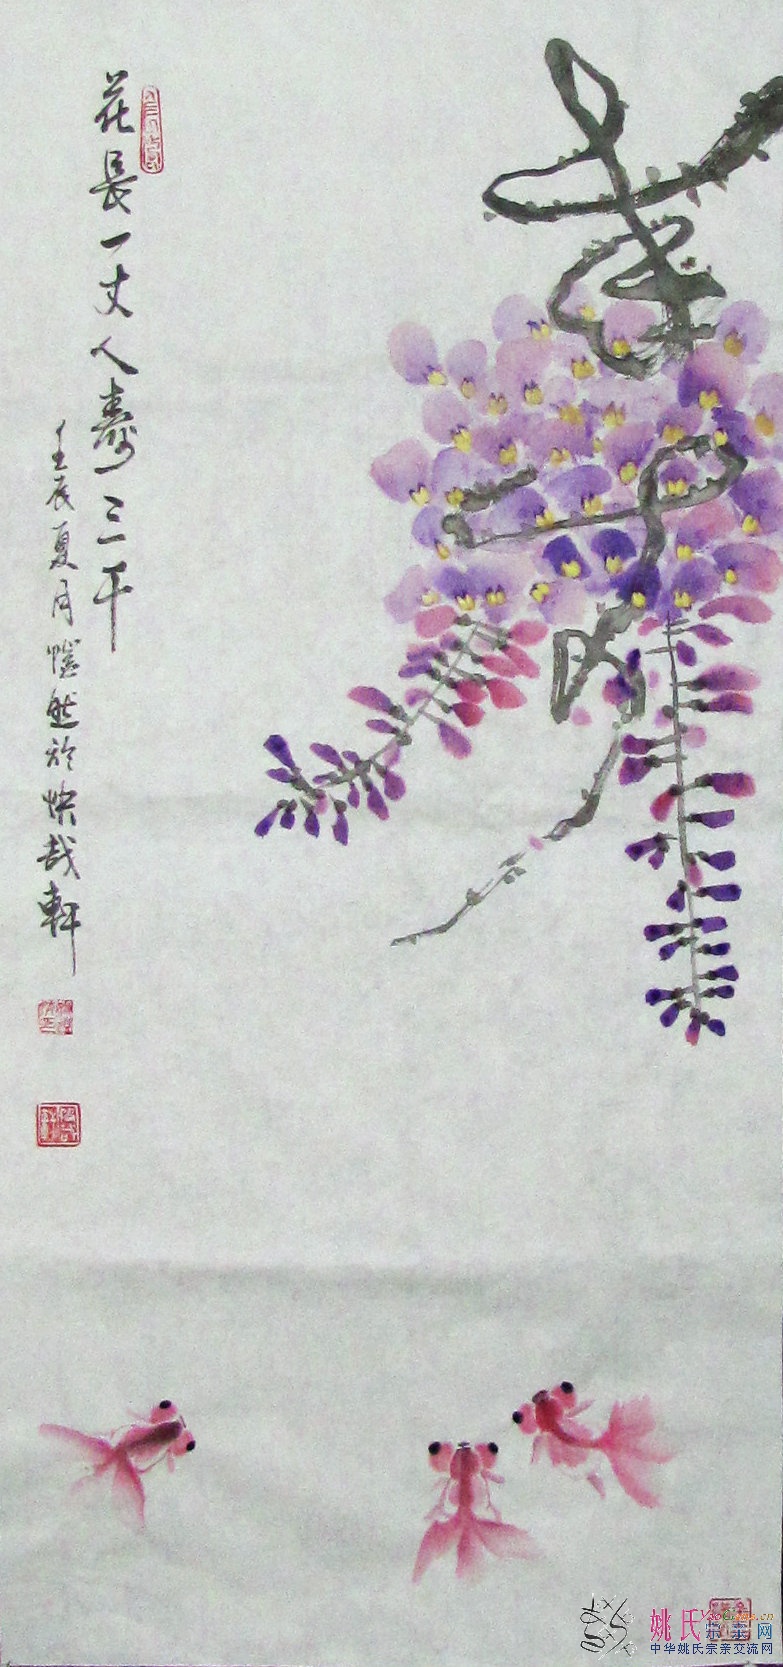 花長一丈人壽三千
壬辰夏月愷然於快哉軒
姚氏宗亲网
中华姚氏宗亲交流网